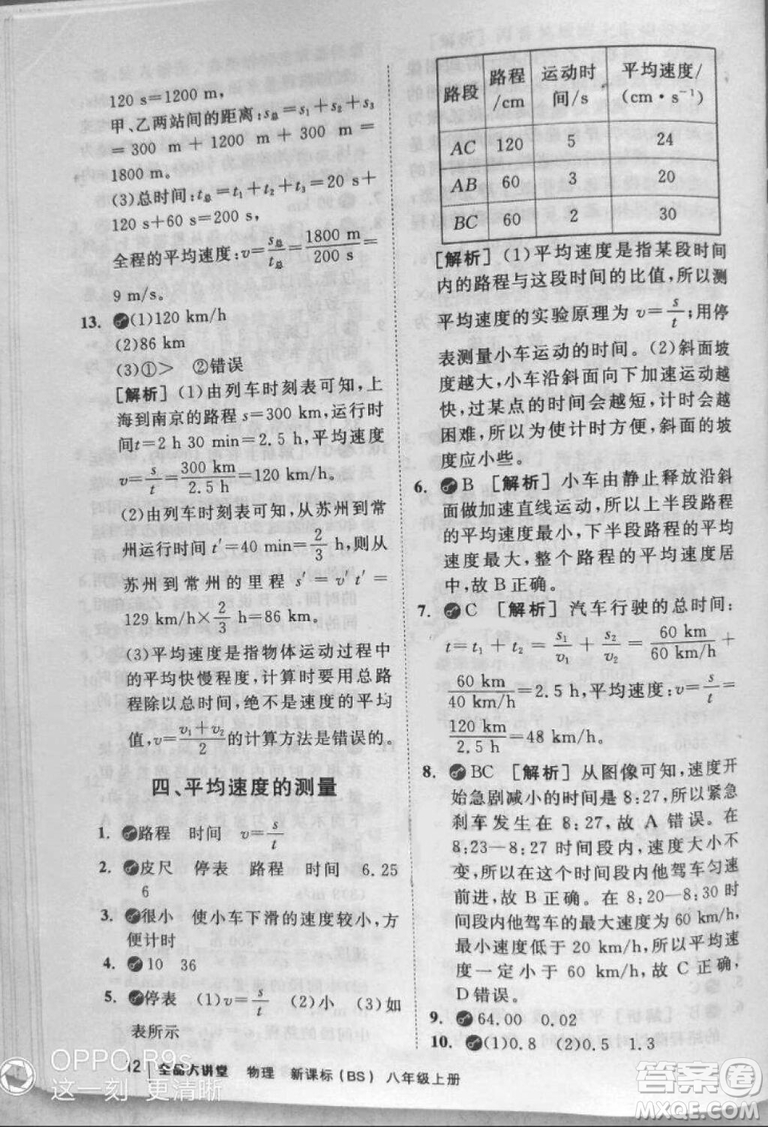 120 s=1200 m.
甲、乙两站间的距离:s总=s₁+s₂+s₃
=300 m+1200 m+300 m=
1800 m.
(3)总时间:t总=t₁+t₂+t₃=20 s+
120 s+60 s=200 s,
全程的平均速度:v=s总/t总=1800 m/200 s=
9 m/s。
13. (1)120 km/h
(2)86 km
(3)①> ②错误
[解析] (1)由列车时刻表可知,上
海到南京的路程 s=300 km,运行时
间t=2 h 30 min=2.5 h,平均速度
v=s/t=300 km/2.5 h=120 km/h.
(2)由列车时刻表可知,从苏州到常
州运行时间 t′=40 min=2/3 h,则从
苏州到常州的里程 s′=v′t′=
129 km/h×2/3 h=86 km.
(3)平均速度是指物体运动过程中
的平均快慢程度,计算时要用总路
程除以总时间,绝不是速度的平均
值,v=(v₁+v₂)/2的计算方法是错误的。
四、平均速度的测量
1. 路程 时间 v=s/t
2. 皮尺 停表 路程 时间 6.25
6
3. 很小 使小车下滑的速度较小,方
便计时
4. 10 36
5. 停表 (1)v=s/t (2)小 (3)如
表所示
路段 路程/cm 运动时间/s 平均速度/(cm·s⁻¹)
AC 120 5 24
AB 60 3 20
BC 60 2 30
[解析] (1)平均速度是指某段时间
内的路程与这段时间的比值,所以测
平均速度的实验原理为v=s/t;用停
表测量小车运动的时间。(2)斜面坡
度越大,小车沿斜面向下加速运动越
快,过某点的时间会越短,计时会越
困难,所以为使计时方便,斜面的坡
度应小些。
6. B [解析] 小车由静止释放沿斜
面做加速直线运动,所以上半段路程
的平均速度最小,下半段路程的平均
速度最大,整个路程的平均速度居
中,故 B 正确。
7. C [解析] 汽车行驶的总时间:
t=t₁+t₂=s₁/v₁+s₂/v₂=60 km/60 km/h+
60 km/40 km/h=2.5 h,平均速度:v=s/t=
120 km/2.5 h=48 km/h.
8. BC [解析] 从图像可知,速度
开始急剧减小的时间是 8:27,所以紧急
刹车发生在 8:27,故 A 错误。在
8:23—8:27,速度大小不变,
所以在这个时间段内他驾车匀速
前进,故 B 正确。在 8:20—8:30 时
间段内他驾车的最大速度是 60 km/h,
最小速度是 0,故 C 正确,
D 错误。
9. 64.00 0.02
10. (1)0.8 (2)0.5 1.3
12 全品大讲堂 物理 新课标(BS) 八年级上册
OPPO R9s
这一刻 更清晰